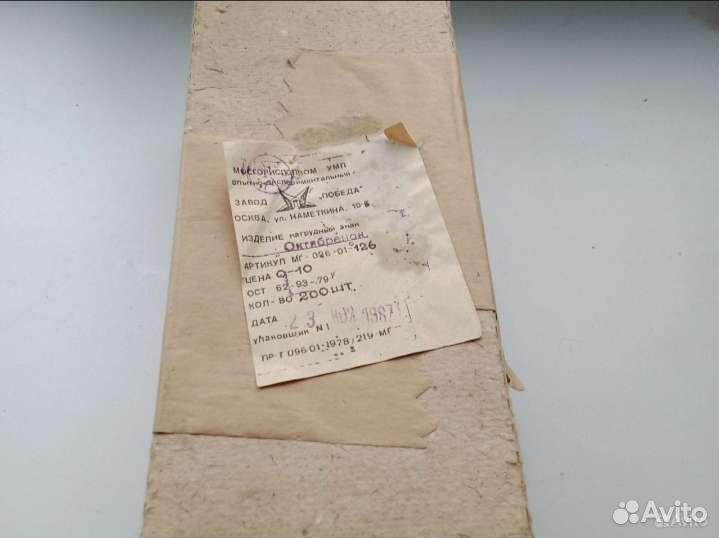 МОСГОРИСПОЛКОМ УМП
ОПЫТНО-ЭКСПЕРИМЕНТАЛЬНЫЙ
ЗАВОД "ПОБЕДА"
ОСКВА, ул. НАМЕТКИНА, 10-Б
ИЗДЕЛИЕ нагрудный знак
Октябренок
АРТИКУЛ МГ-096-01-126
ЦЕНА 0-10
ОСТ 62-93-79
КОЛ-ВО 200 шт.
ДАТА 23 1987
упаковщик N 1
ПР-Т 096 01-1978/219 МГ
Avito